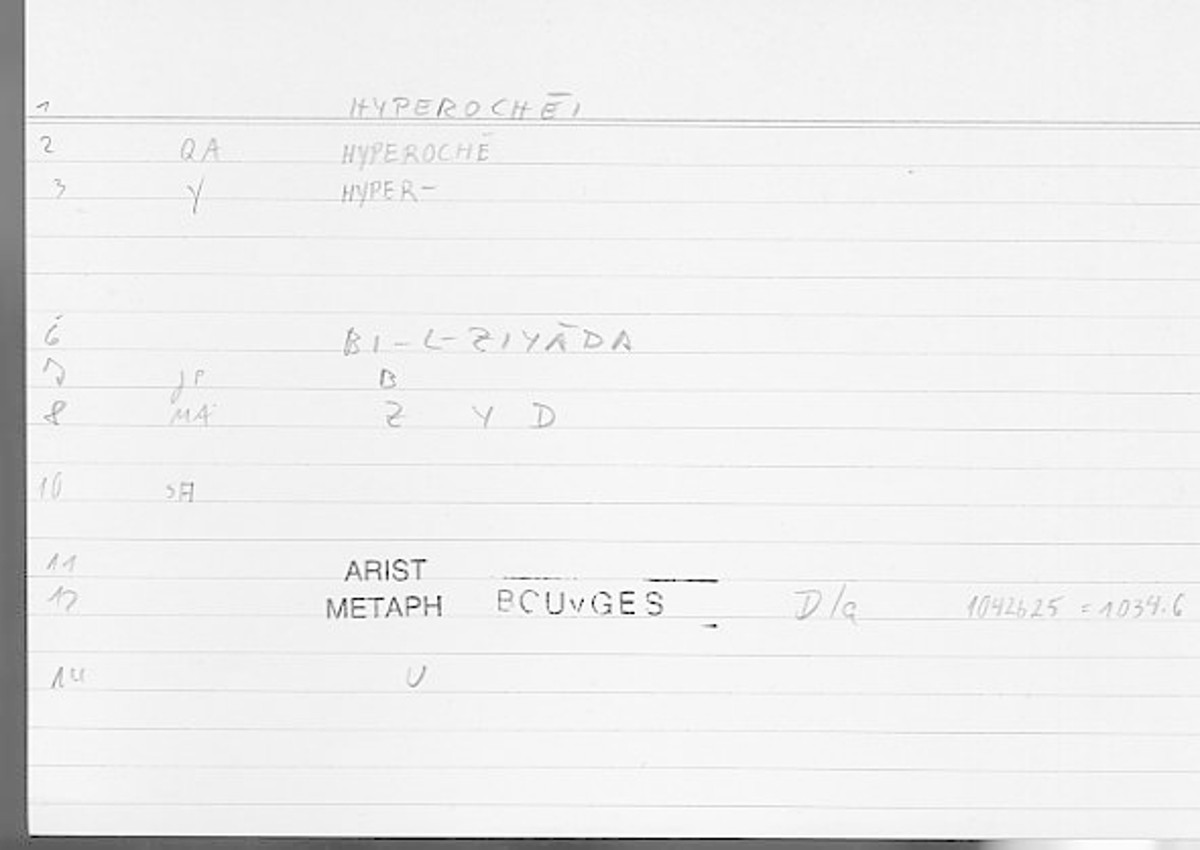 1 HYPEROCHĒI
2 QA HYPEROCHĒ
3 Y HYPER-
6 BI-L-ZIYĀDA
7 JP B
8 MA Z Y D
10 SA
11 ARIST
12 METAPH BOUYGES D/a 1042b25 = 1034.6
14 U